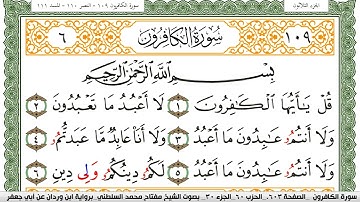 الجزء الثلاثون
سورة الكافرون ١٠٩ - النصر ١١٠ - المسد ١١١
١٠٩ سُورَةُ الْكَافِرُونَ ٦
بِسْمِ اللَّهِ الرَّحْمَٰنِ الرَّحِيمِ
قُلْ يَـٰٓأَيُّهَا الْكَـٰفِرُونَ ١ لَا أَعْبُدُ مَا تَعْبُدُونَ ٢
وَلَا أَنتُمُ عَـٰبِدُونَ مَا أَعْبُدُ ٣ وَلَا أَنَا عَابِدٌ مَّا عَبَدتُّمُ ٤
وَلَا أَنتُمُ عَـٰبِدُونَ مَا أَعْبُدُ ٥ لَكُمُ دِينُكُمُ وَلِي دِينِ ٦
سورة الكافرون . الصفحة ٦٠٣ . الحزب ٦٠ . الجزء ٣٠ . بصوت الشيخ مفتاح محمد السلطني برواية ابن وردان عن أبي جعفر